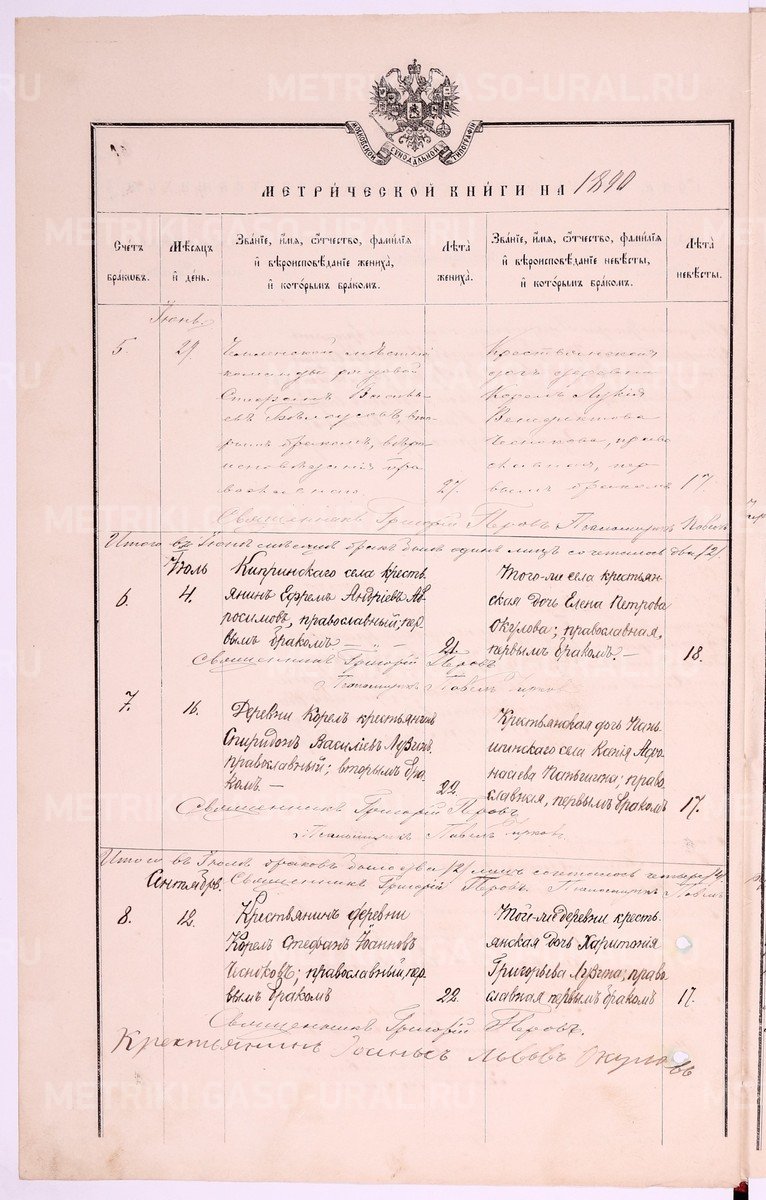 METRIKI.GASO-URAL.RU
МОСКОВСКОЙ СѴНОДАЛЬНОЙ ТИПОГРАФІИ
МЕТРИ́ЧЕСКОЙ КНИ́ГИ НА 1890
Счетъ браковъ.
Мѣсяцъ и день.
Зва́нїе, и́мя, ѻ҆́тчество, фами́лїя и вѣроисповѣ́данїе жениха̀, и кото́рымъ бра́комъ.
Лѣта̀ жениха̀.
Зва́нїе, и́мя, ѻ҆́тчество, фами́лїя и вѣроисповѣ́данїе невѣ́сты, и кото́рымъ бра́комъ.
Лѣта̀ невѣ́сты.
Іюнь
5.
29.
команды рядовой
Стефанъ Василь-
евъ Бѣлоусовъ, вто-
рымъ бракомъ, вѣро-
исповѣданія пра-
вославнаго
27.
Крестьянская
дочь деревни
Корелъ Лукія
Венедиктова
Чеснокова, право-
славная, пер-
вымъ бракомъ
17.
Священникъ Григорій Перовъ Псаломщикъ Павелъ
Итого въ Іюнѣ мѣсяцѣ бракъ былъ одинъ лицъ сочеталось два /2/
Іюль
6.
4.
Кипринскаго села кресть-
янинъ Ефремъ Андріевъ Аб-
росимовъ, православный; пер-
вымъ бракомъ —
21.
Того-же села крестьян-
ская дочь Елена Петрова
Окулова; православная,
первымъ бракомъ. —
18.
Священникъ Григорій Перовъ
Псаломщикъ Павелъ
7.
16.
Деревни Корелъ крестьянинъ
Спиридонъ Василіевъ Лузинъ,
православный; вторымъ бра-
комъ. —
22.
Крестьянская дочь Пань-
шинскаго села Ксенія Афо-
насьева Паньшина; право-
славная, первымъ бракомъ
17.
Священникъ Григорій Перовъ
Псаломщикъ Павелъ
Итого въ Іюлѣ браковъ было два /2/ лицъ сочеталось четыре /4/
Сентябрь.
Священникъ Григорій Перовъ. Псаломщикъ Павелъ
8.
12.
Крестьянинъ деревни
Корелъ Стефанъ Іоанновъ
Чесноковъ; православный, пер-
вымъ бракомъ
22.
Той-же деревни кресть-
янская дочь Харитинія
Григорьева Лузина; право-
славная первымъ бракомъ
17.
Священникъ Григорій Перовъ.
Крестьянинъ Іоаннъ Львовъ Окуловъ